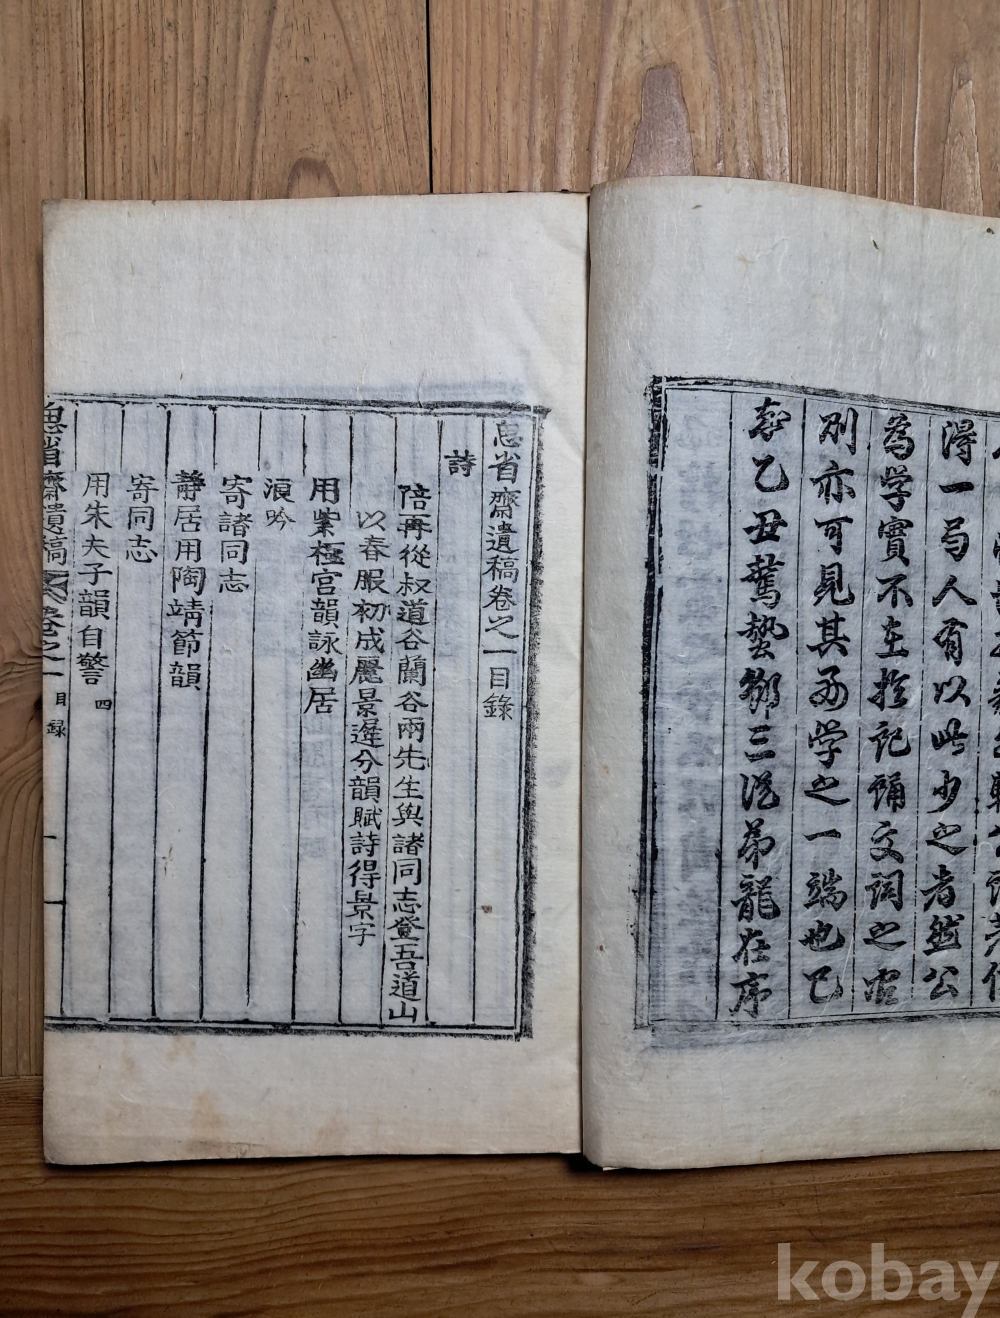 得一局人有以此少之者然公
為學實不在於記誦文詞之間
別亦可見其為学之一端也已
乙丑驚蟄節三從弟龍在序
息省齋遺稿卷之一目錄
詩
陪再從叔道谷蘭谷兩先生與諸同志登吾道山
以春服初成麗景遲分韻賦詩得景字
用紫極宮韻詠幽居
浪吟
寄諸同志
靜居用陶靖節韻
寄同志
用朱夫子韻自警 四
息省齋遺稿 卷之一 目錄 一
kobay